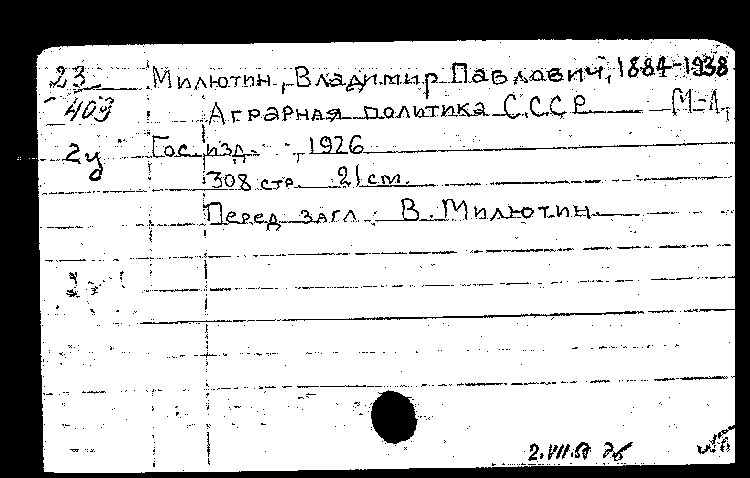 23 Милютин, Владимир Павлович, 1884-1938
403 Аграрная политика С.С.С.Р. М-Л,
2у Гос. изд. , 1926
308 стр. 21 cm.
Перед загл.: В. Милютин
2.VII.